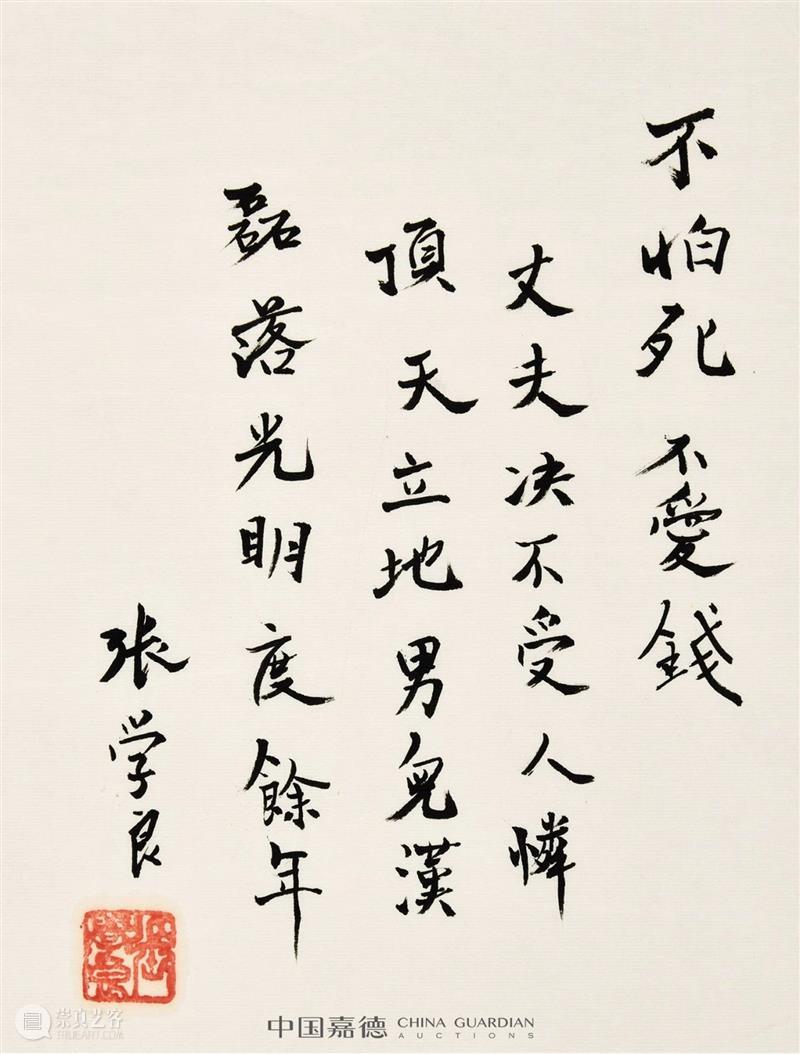 不怕死 不愛錢
丈夫决不受人憐
頂天立地男兒漢
磊落光明度餘年
张学良
崇真艺客
TRUEART.COM
中国嘉德 CHINA GUARDIAN
AUCTIONS